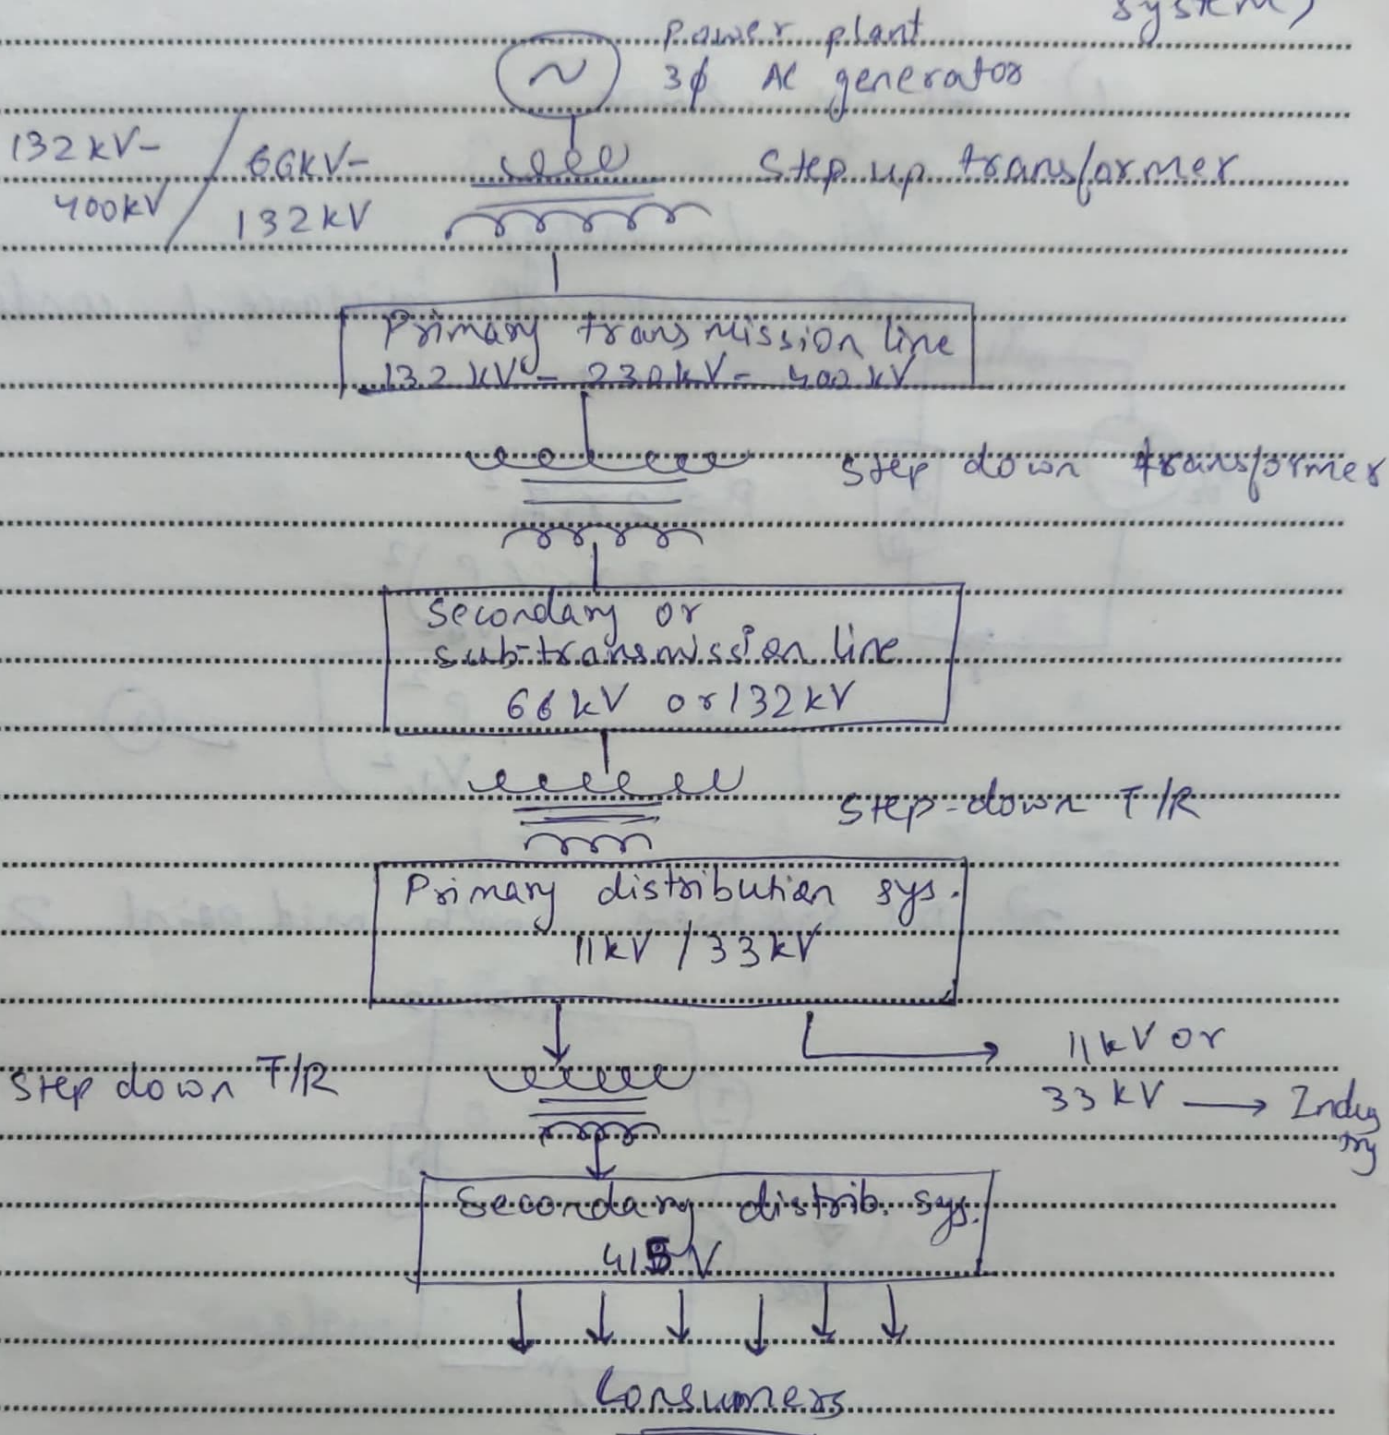 system)
Power plant
3ϕ AC generator
132 kV- / 66kV-
400kV / 132 kV
Step up transformer
Primary transmission line
132 kV - 230kV - 400 kV
Step down transformer
Secondary or
sub-transmission line
66 kV or 132 kV
Step-down T/R
Primary distribution sys.
11kV / 33kV
11kV or
33 kV → Industry
Step down T/R
Secondary distrib. sys.
415 V
Consumers